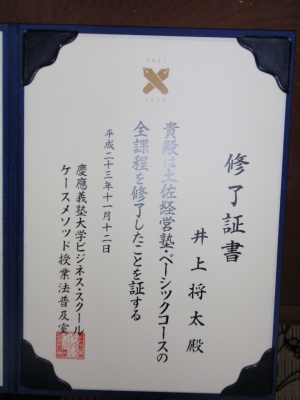 修了証書
井上将太殿
貴殿は土佐経営塾・ベーシックコースの
全課程を修了したことを証する
平成二十三年十一月十二日
慶應義塾大学ビジネス・スクール
ケースメソッド授業法普及室